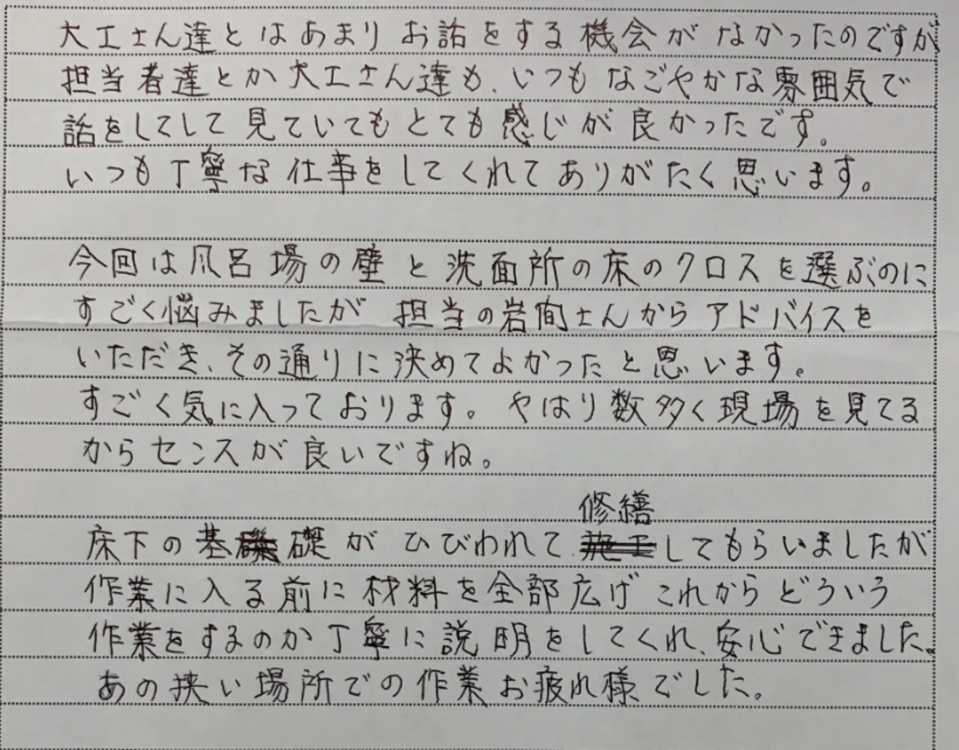 大工さん達とはあまりお話をする機会がなかったのですが
担当者達とか大工さん達も、いつもなごやかな雰囲気で
話をしてして見ていてもとても感じが良かったです。
いつも丁寧な仕事をしてくれてありがたく思います。
今回は風呂場の壁と洗面所の床のクロスを選ぶのに
すごく悩みましたが 担当の岩間さんからアドバイスを
いただき、その通りに決めてよかったと思います。
すごく気に入っております。やはり数多く現場を見てる
からセンスが良いですね。
修繕
床下の基礎がひびわれて施工してもらいましたが
作業に入る前に材料を全部広げこれからどういう
作業をするのか丁寧に説明をしてくれ、安心できました。
あの狭い場所での作業お疲れ様でした。